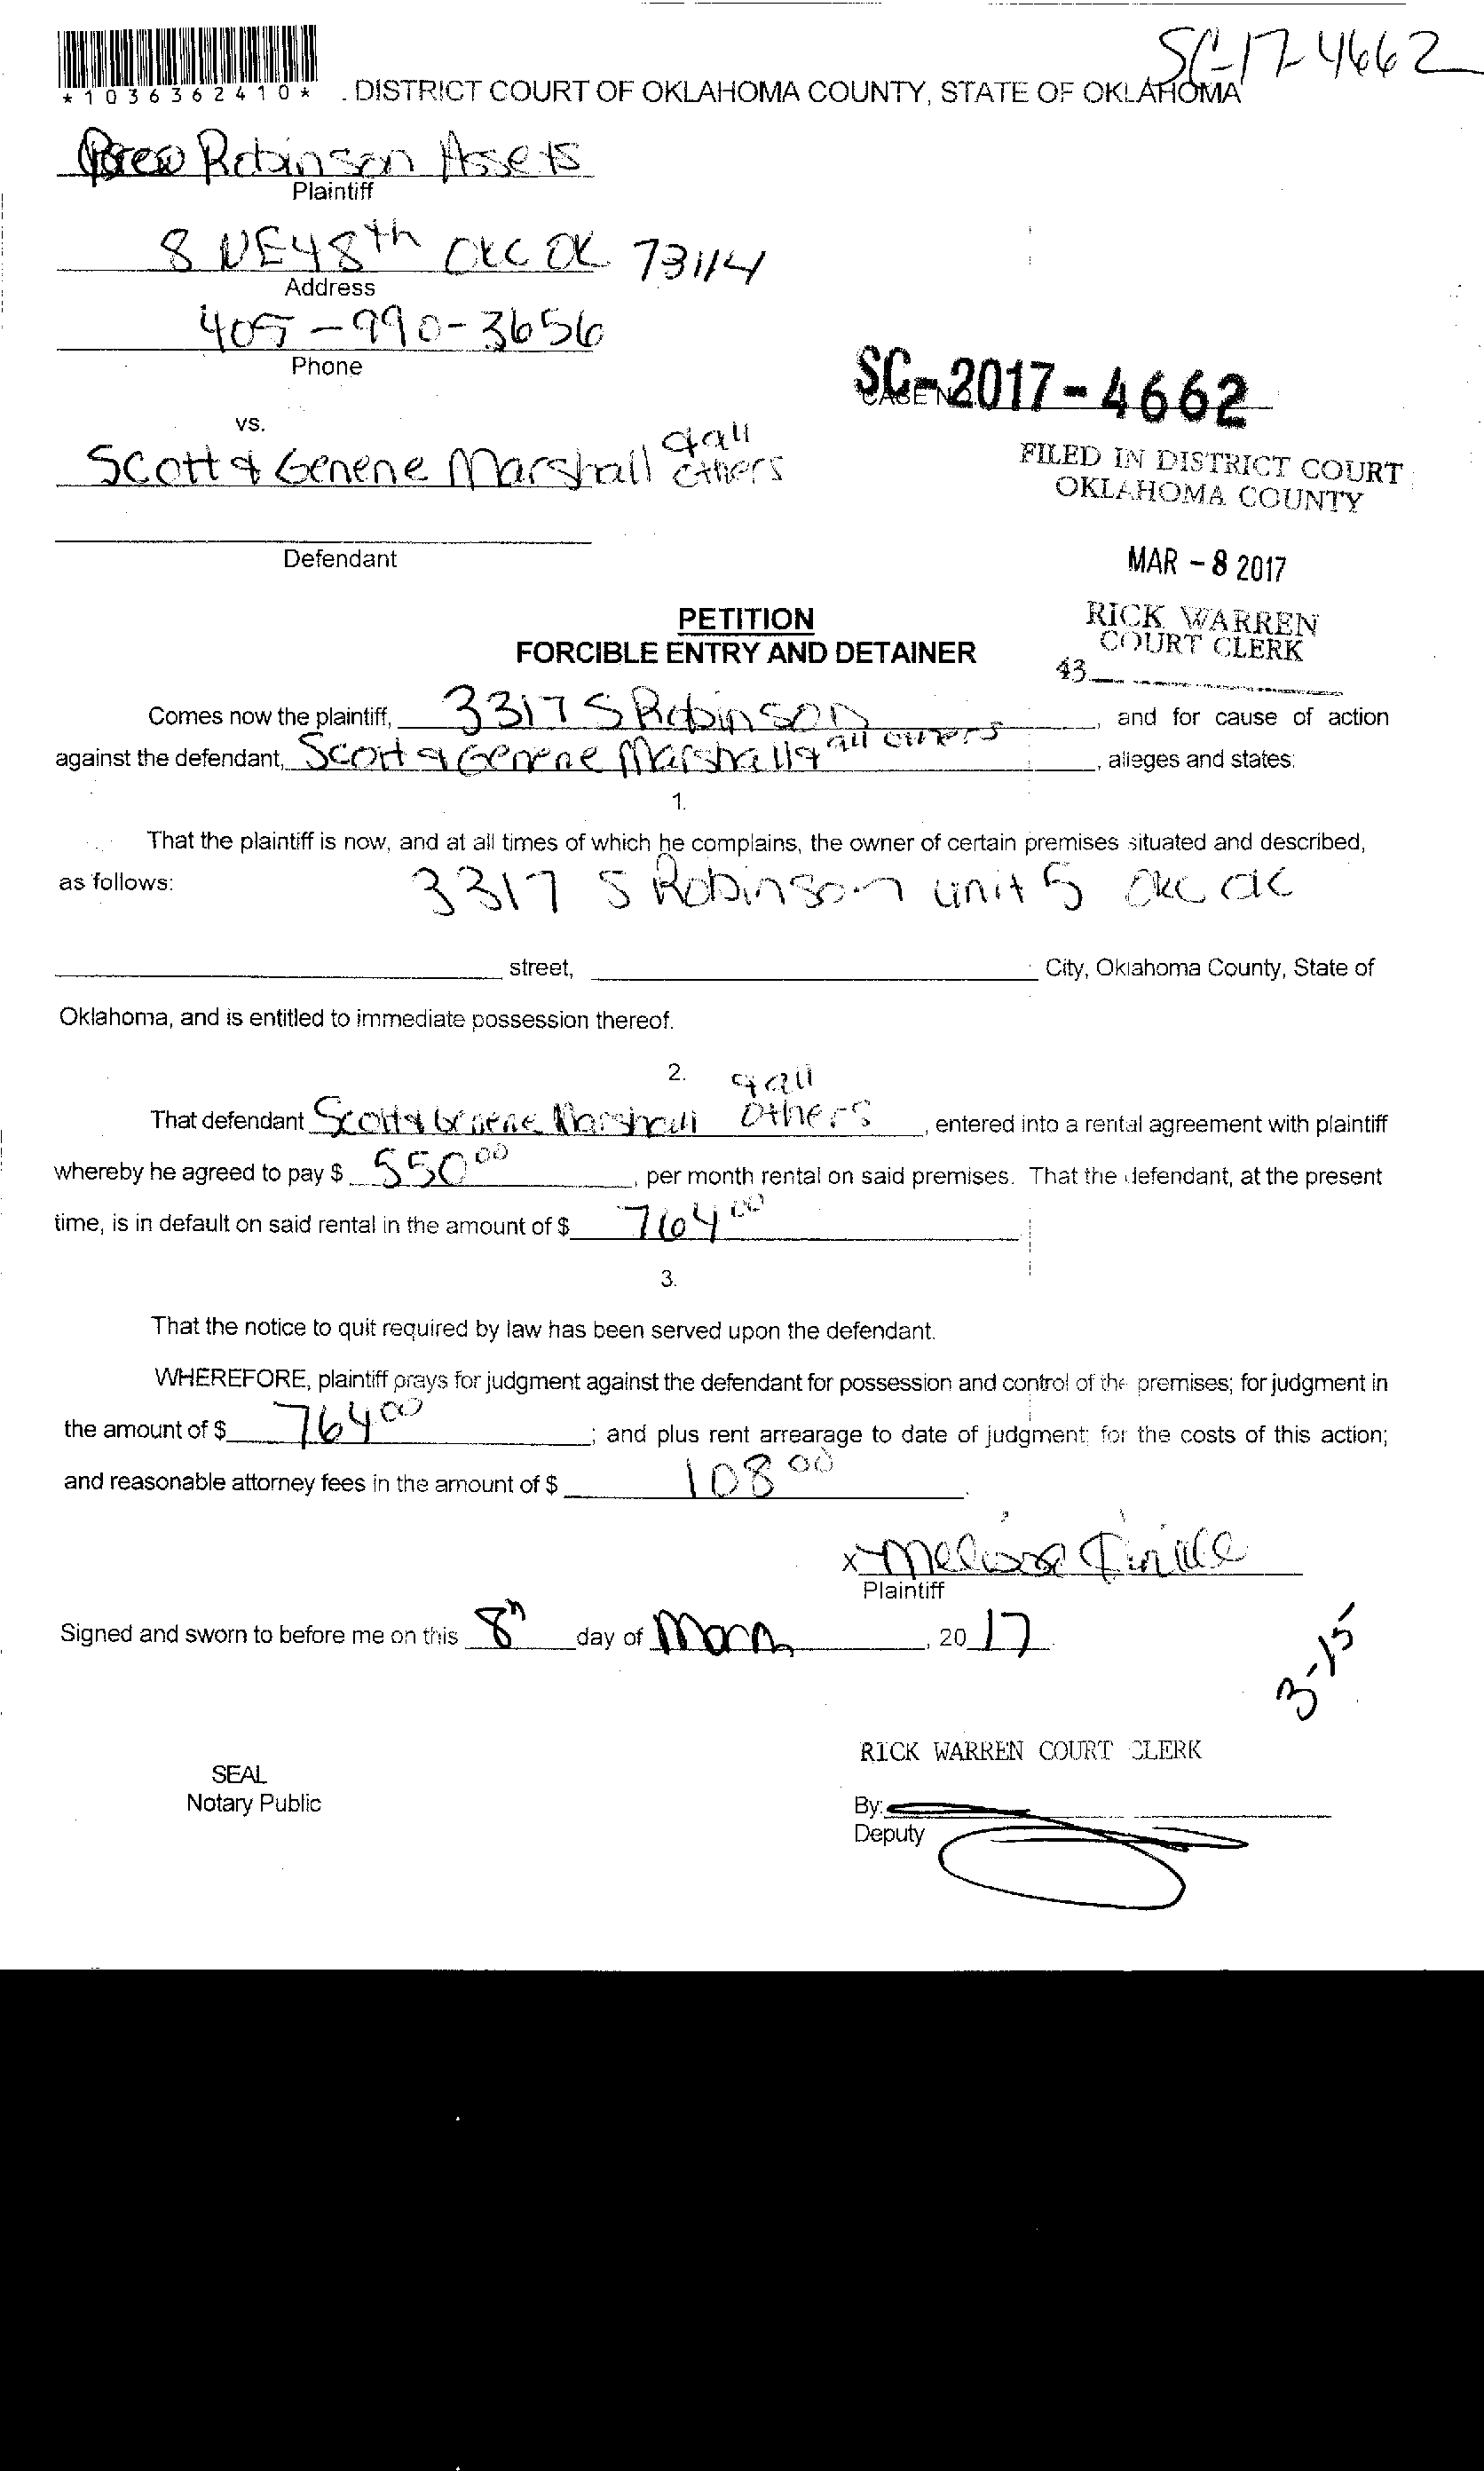 SC-17-4662
*1036362410*
. DISTRICT COURT OF OKLAHOMA COUNTY, STATE OF OKLAHOMA
Robinson Assets
Plaintiff
8 NE 48th OKC OK 73114
Address
405-990-3656
Phone
SC-2017-4662
CASE NO.
vs.
Scott & Genene Marshall & all others
FILED IN DISTRICT COURT
OKLAHOMA COUNTY
Defendant
MAR - 8 2017
PETITION
FORCIBLE ENTRY AND DETAINER
RICK WARREN
COURT CLERK
43
Comes now the plaintiff, 3317 S Robinson, and for cause of action
against the defendant, Scott & Genene Marshall & all others, alleges and states:
1.
That the plaintiff is now, and at all times of which he complains, the owner of certain premises situated and described,
as follows: 3317 S Robinson unit 5 OKC OK
street, City, Oklahoma County, State of
Oklahoma, and is entitled to immediate possession thereof.
2.
That defendant Scott & Genene Marshall & all others, entered into a rental agreement with plaintiff
whereby he agreed to pay $ 550 00, per month rental on said premises. That the defendant, at the present
time, is in default on said rental in the amount of $ 764 00
3.
That the notice to quit required by law has been served upon the defendant.
WHEREFORE, plaintiff prays for judgment against the defendant for possession and control of the premises; for judgment in
the amount of $ 764 00; and plus rent arrearage to date of judgment; for the costs of this action;
and reasonable attorney fees in the amount of $ 108 00.
x Melissa
Plaintiff
Signed and sworn to before me on this 8th day of March, 20 17.
3-15
RICK WARREN COURT CLERK
SEAL
Notary Public
By:
Deputy